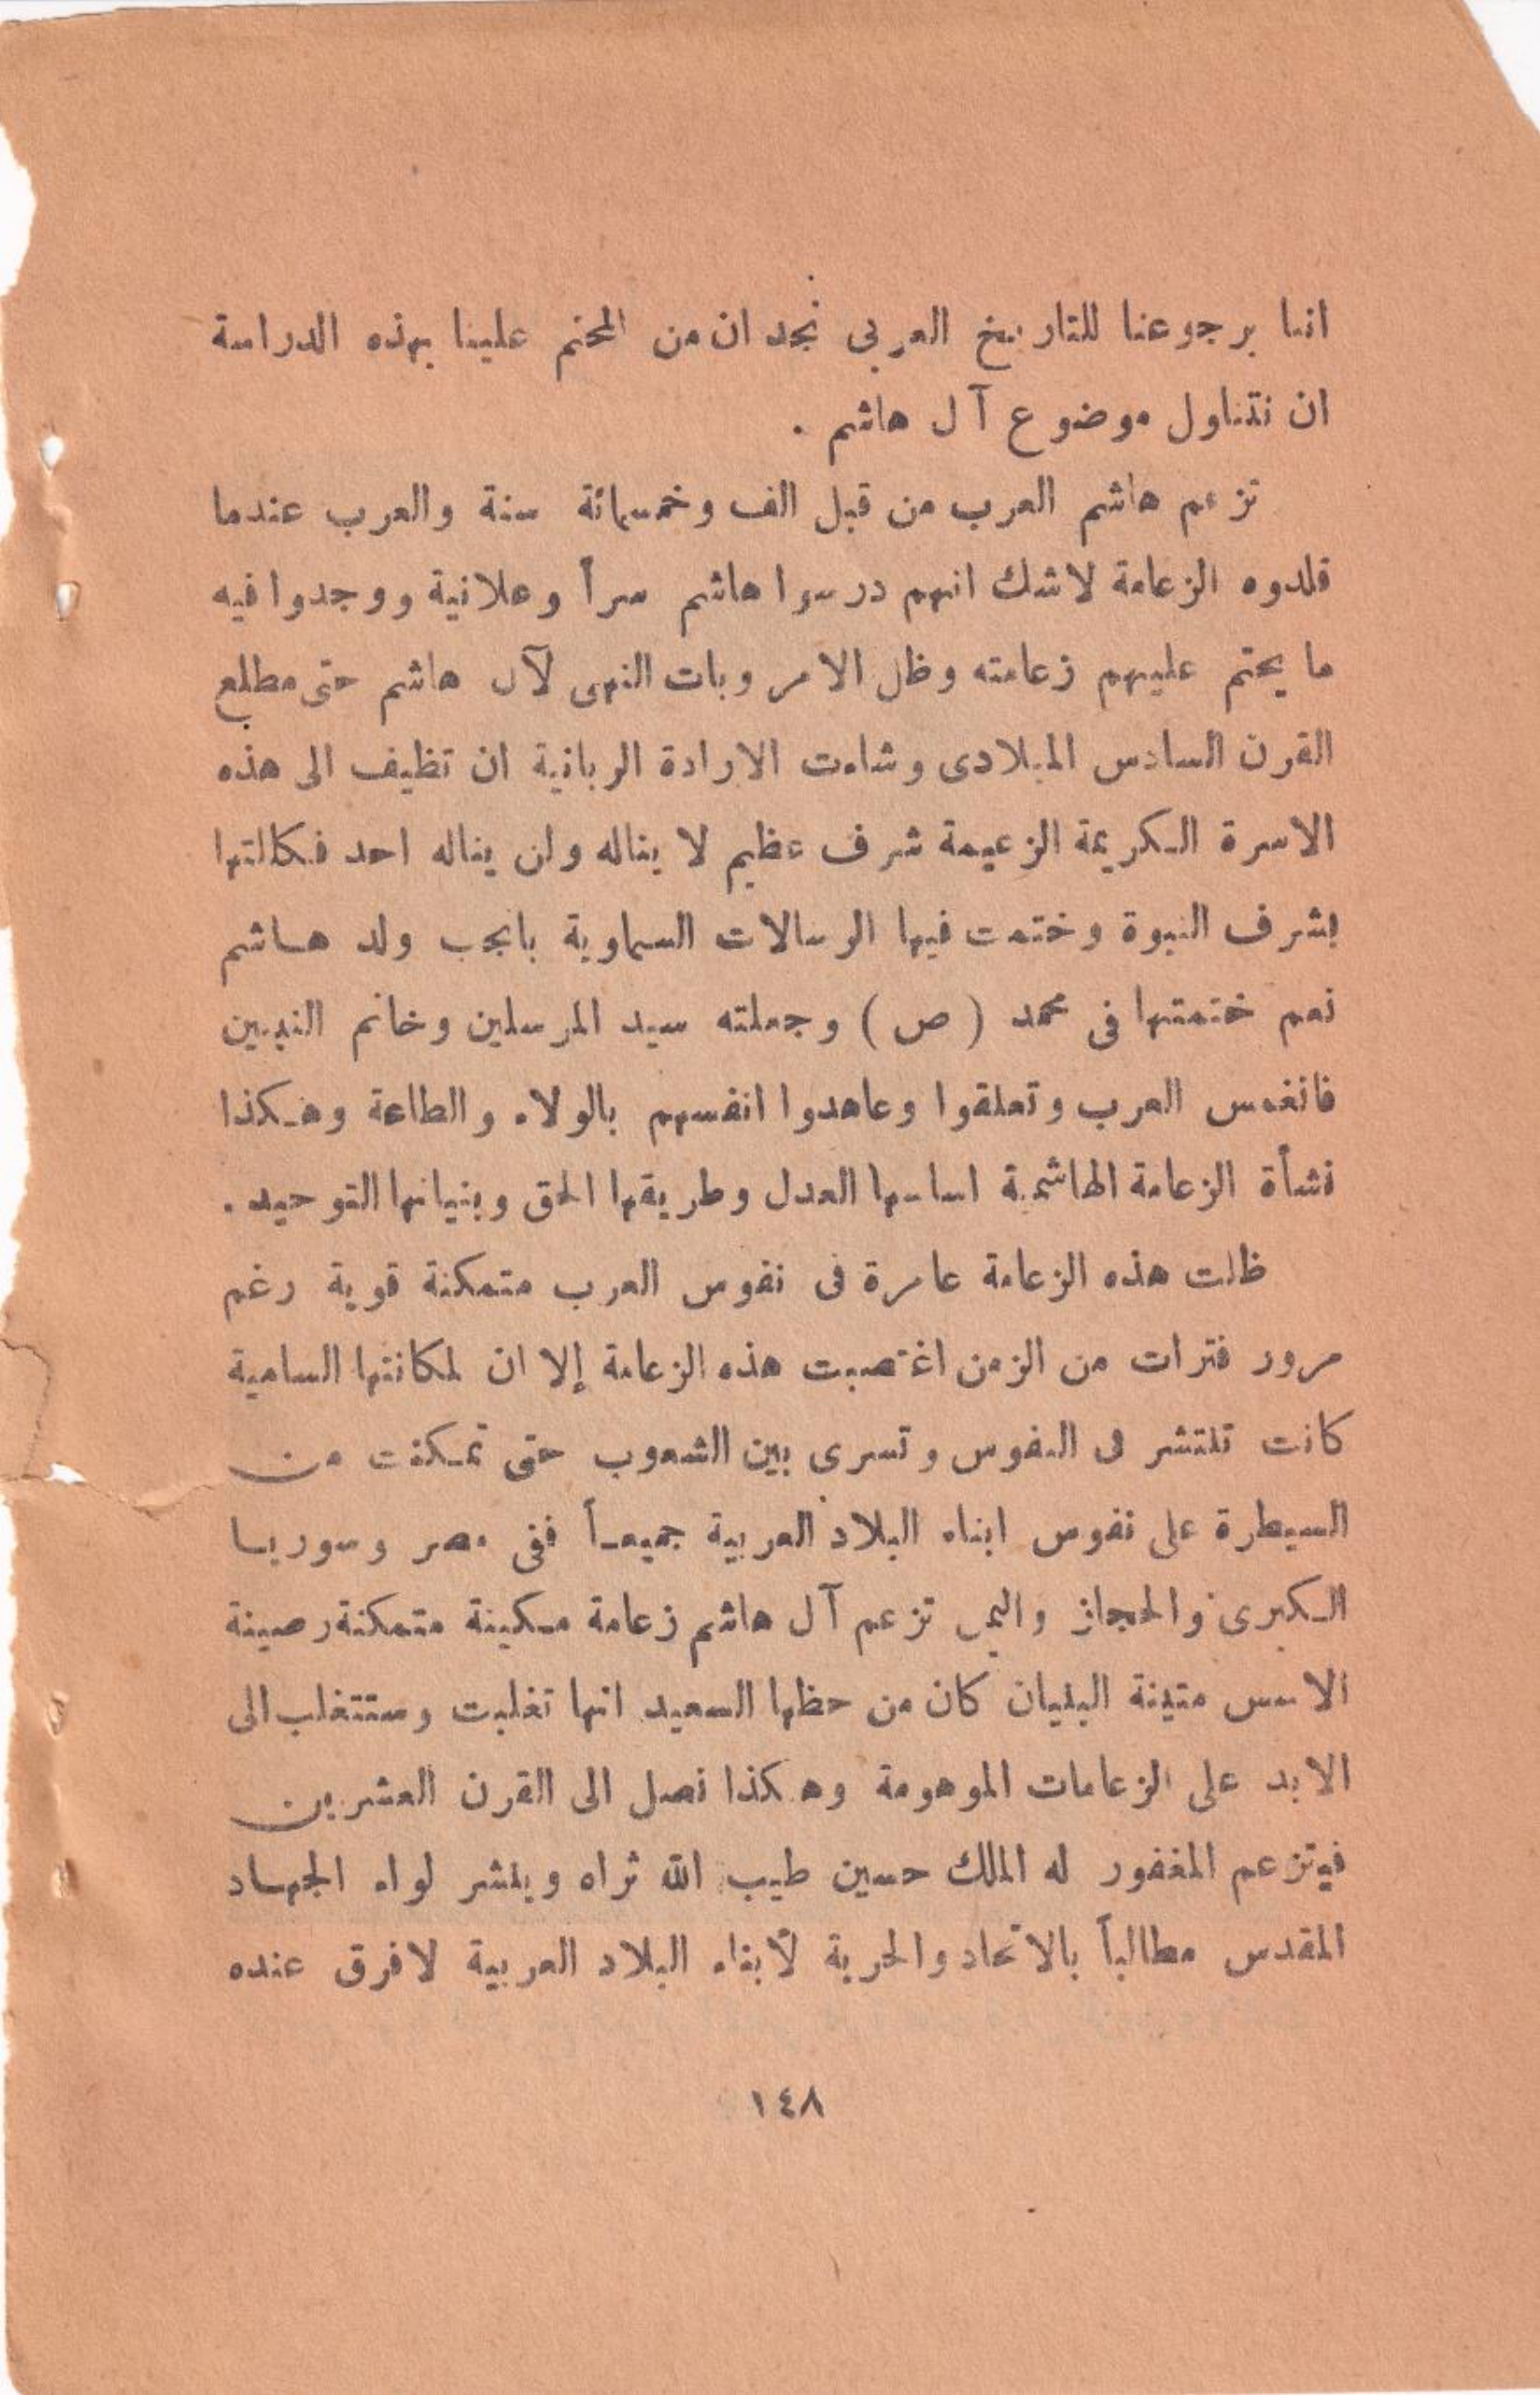 اننا برجوعنا للتاريخ العربى نجد ان من المحتم علينا بهذه الدراسة
ان نتناول موضوع آل هاشم .
تزعم هاشم العرب من قبل الف وخمسمائة سنة والعرب عندما
قلدوه الزعامة لاشك انهم درسوا هاشم سراً وعلانية ووجدوا فيه
ما يحتم عليهم زعامته وظل الامر وبات النهى لآل هاشم حتى مطلع
القرن السادس الميلادى وشاءت الارادة الربانية ان تظيف الى هذه
الاسرة الكريمة الزعيمة شرف عظيم لا يناله ولن يناله احد فكالتها
بشرف النبوة وختمت فيها الرسالات السماوية بانجب ولد هاشم
نعم ختمتها فى محمد ( ص ) وجعلته سيد المرسلين وخاتم النبيين
فانغمس العرب وتعلقوا وعاهدوا انفسهم بالولاء والطاعة وهكذا
نشأة الزعامة الهاشمية اساسها العدل وطريقها الحق وبنيانها التوحيد .
ظلت هذه الزعامة عامرة فى نفوس العرب متمكنة قوية رغم
مرور فترات من الزمن اغتصبت هذه الزعامة إلا ان لمكانتها السامية
كانت تنتشر فى النفوس وتسرى بين الشعوب حتى تمكنت من
السيطرة على نفوس ابناء البلاد العربية جميعاً ففى مصر وسوريا
الكبرى والحجاز واليمن تزعم آل هاشم زعامة مكينة متمكنة رصينة
الاسس متينة البنيان كان من حظها السعيد انها تغلبت وستتغلب الى
الابد على الزعامات الموهومة وهكذا نصل الى القرن العشرين
فيتزعم المغفور له الملك حسين طيب الله ثراه وينشر لواء الجهاد
المقدس مطالباً بالاتحاد والحرية لأبناء البلاد العربية لافرق عنده
١٤٨